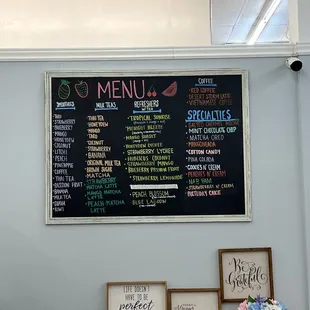 MENU
SMOOTHIES
TARO
STRAWBERRY
BLUEBERRY
MANGO
HONEYDEW
COCONUT
LYCHEE
PEACH
PINEAPPLE
COFFEE
THAI TEA
PASSION FRUIT
BANANA
MILK TEA
MILK TEAS
THAI TEA
HONEYDEW
MANGO
TARO
COCONUT
STRAWBERRY
BANANA
ORIGINAL MILK TEA
BROWN SUGAR
MATCHA
STRAWBERRY
MATCHA LATTE
MANGO MATCHA
LATTE
PEACH MATCHA
LATTE
REFRESHERS
TROPICAL SUNRISE
MIDNIGHT BERRY
MANGO SUNSET
STRAWBERRY LYCHEE
HIBISCUS COCONUT
STRAWBERRY MANGO
BLUEBERRY PASSION
STRAWBERRY LEMONADE
PEACH BLOSSOM
BLUE LAGOON
COFFEE
ICED COFFEE
VIETNAMESE COFFEE
SPECIALTIES
MINT CHOCOLATE CHIP
MATCHA
MANGONADA
COTTON CANDY
PINA COLADA
COOKIES N' CREAM
PEACHES N' CREAM
STRAWBERRIES N' CREAM
BIRTHDAY CAKE
Be
grateful
LIFE DOESN'T
HAVE TO BE
perfect